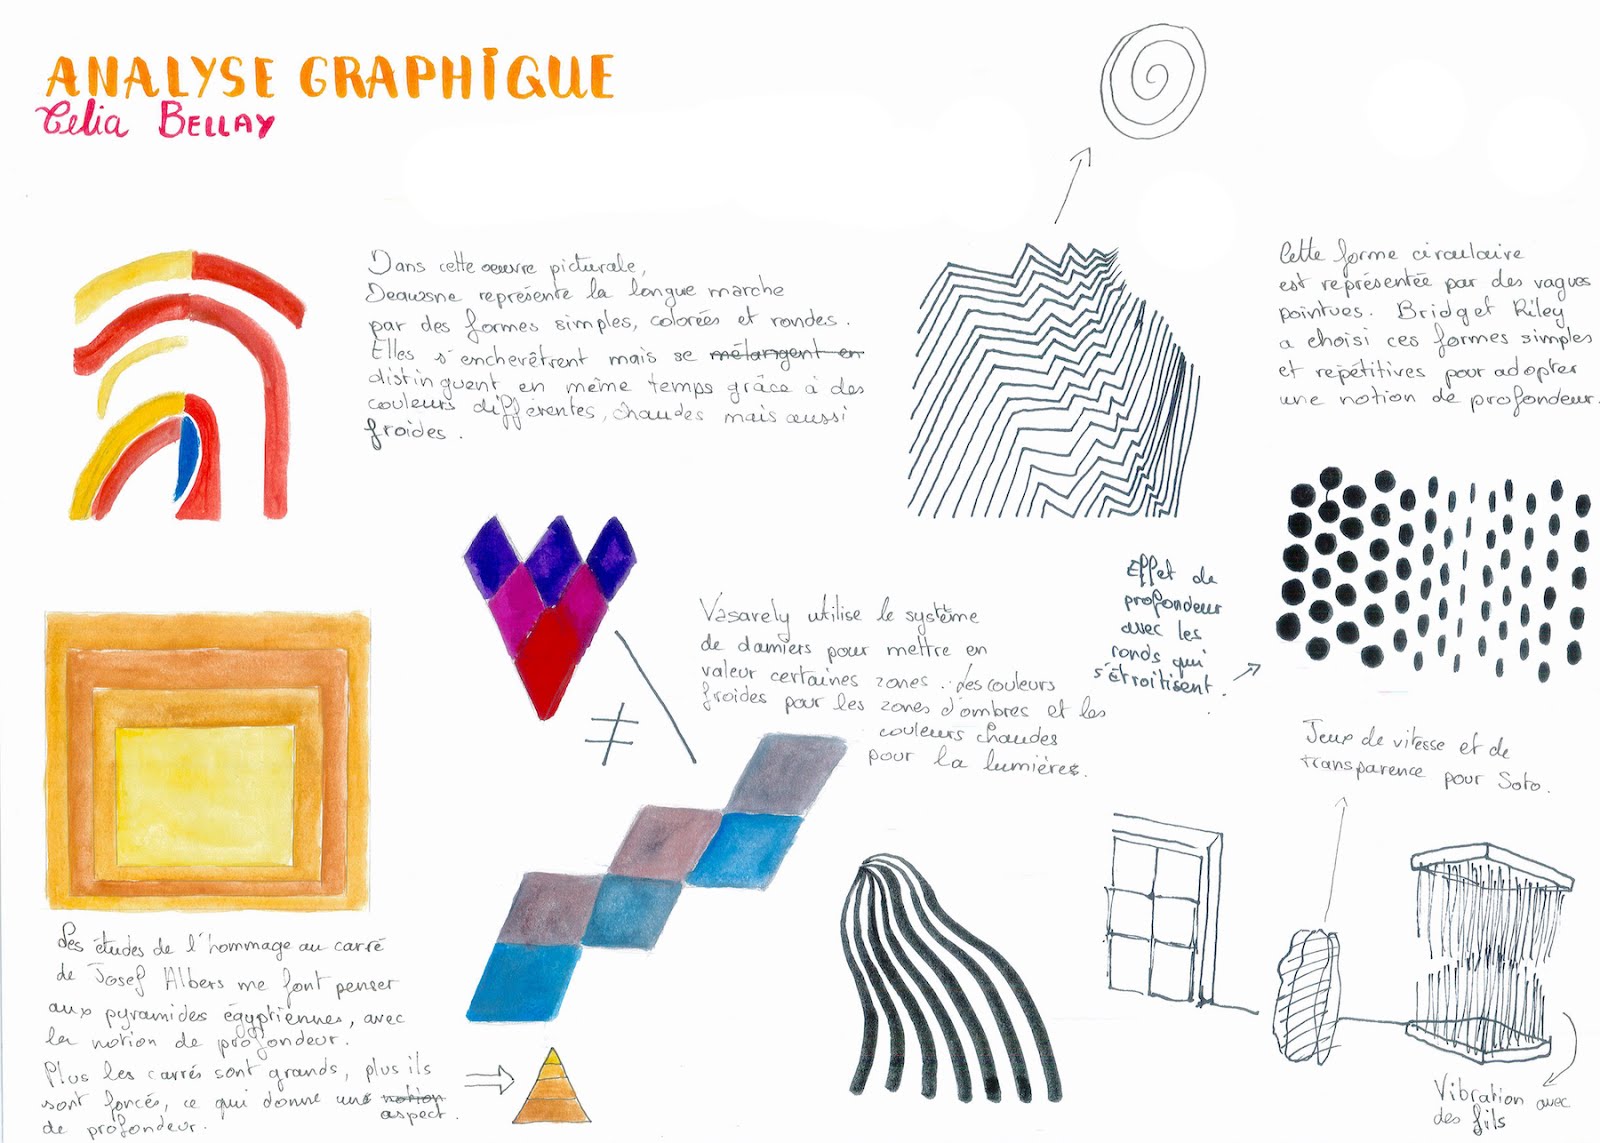 ANALYSE GRAPHIQUE
Celia BELLAY
Dans cette oeuvre picturale,
Deawsne représente la longue marche
par des formes simples, colorées et rondes.
Elles s'enchevêtrent mais se mélangent en
distinguent en même temps grâce à des
couleurs différentes, chaudes mais aussi
froides.
Cette forme circulaire
est représentée par des vagues
pointues. Bridget Riley
a choisi ces formes simples
et répétitives pour adopter
une notion de profondeur.
Effet de
profondeur
avec les
ronds qui
s'étroitisent.
Vasarely utilise le système
de damiers pour mettre en
valeur certaines zones. Les couleurs
froides pour les zones d'ombres et les
couleurs chaudes
pour la lumière.
≠
Jeux de vitesse et de
transparence pour Soto.
Les études de l'hommage au carré
de Josef Albers me font penser
aux pyramides égyptiennes, avec
la notion de profondeur.
Plus les carrés sont grands, plus ils
sont foncés, ce qui donne une notion
aspect.
de profondeur.
Vibration avec
des fils